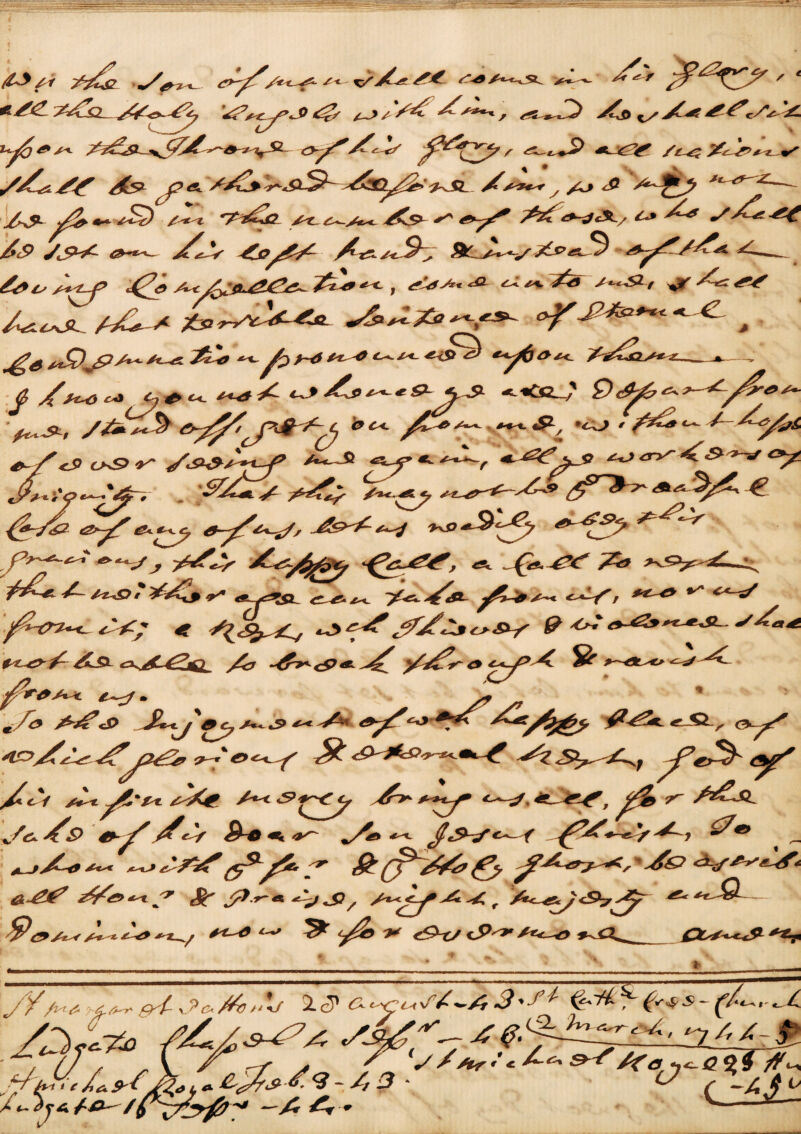 wn the Son of man shall come in his Glory,
all the Holy Angels with him, and he shall sit
upon the Throne of his Glory, and all nations
shall be gathered before him, we may not
be found in the number of those, who shall
be set on his left hand, & instead of that
loving Compellation, come unto me, shall
have that terrible Sentence of Eternal
Condemnation pronounced upon them.
I know you not whence ye are; Depart from
me, stand off, get you from me, without hope
of ever seeing me again, all ye workers of
Iniquity. That this may not be ye dreadful
Case of any of us, let us readily obey this
gracious, this happy Call, a Call to rest
that neither age can take from us, nor us
from it; a Rest, wch Thieves & violence shall
not be able to break through & ravish
from us.
To the Enjoyment of wch happy Place, of
which glorious & eternal Rest, God of
his infinite mercy bring us all, for the
sake of his dear Son Jesus Christ, To
whom with ye fa.r & ye Holy Ghost, be ascrib
all Hon.r & Praise, might, majesty and
Dominion, now & for evermore amen.
St margaret Pattons 28 August -43. St Cath.e Cree-Church
2 March, 1744-5
Ludgate Chapel 4 Sepr -43.
St michael Royal 23
-45
St michael Royal Feb. 8 -43.
Ludgate 16 Sepr -44.